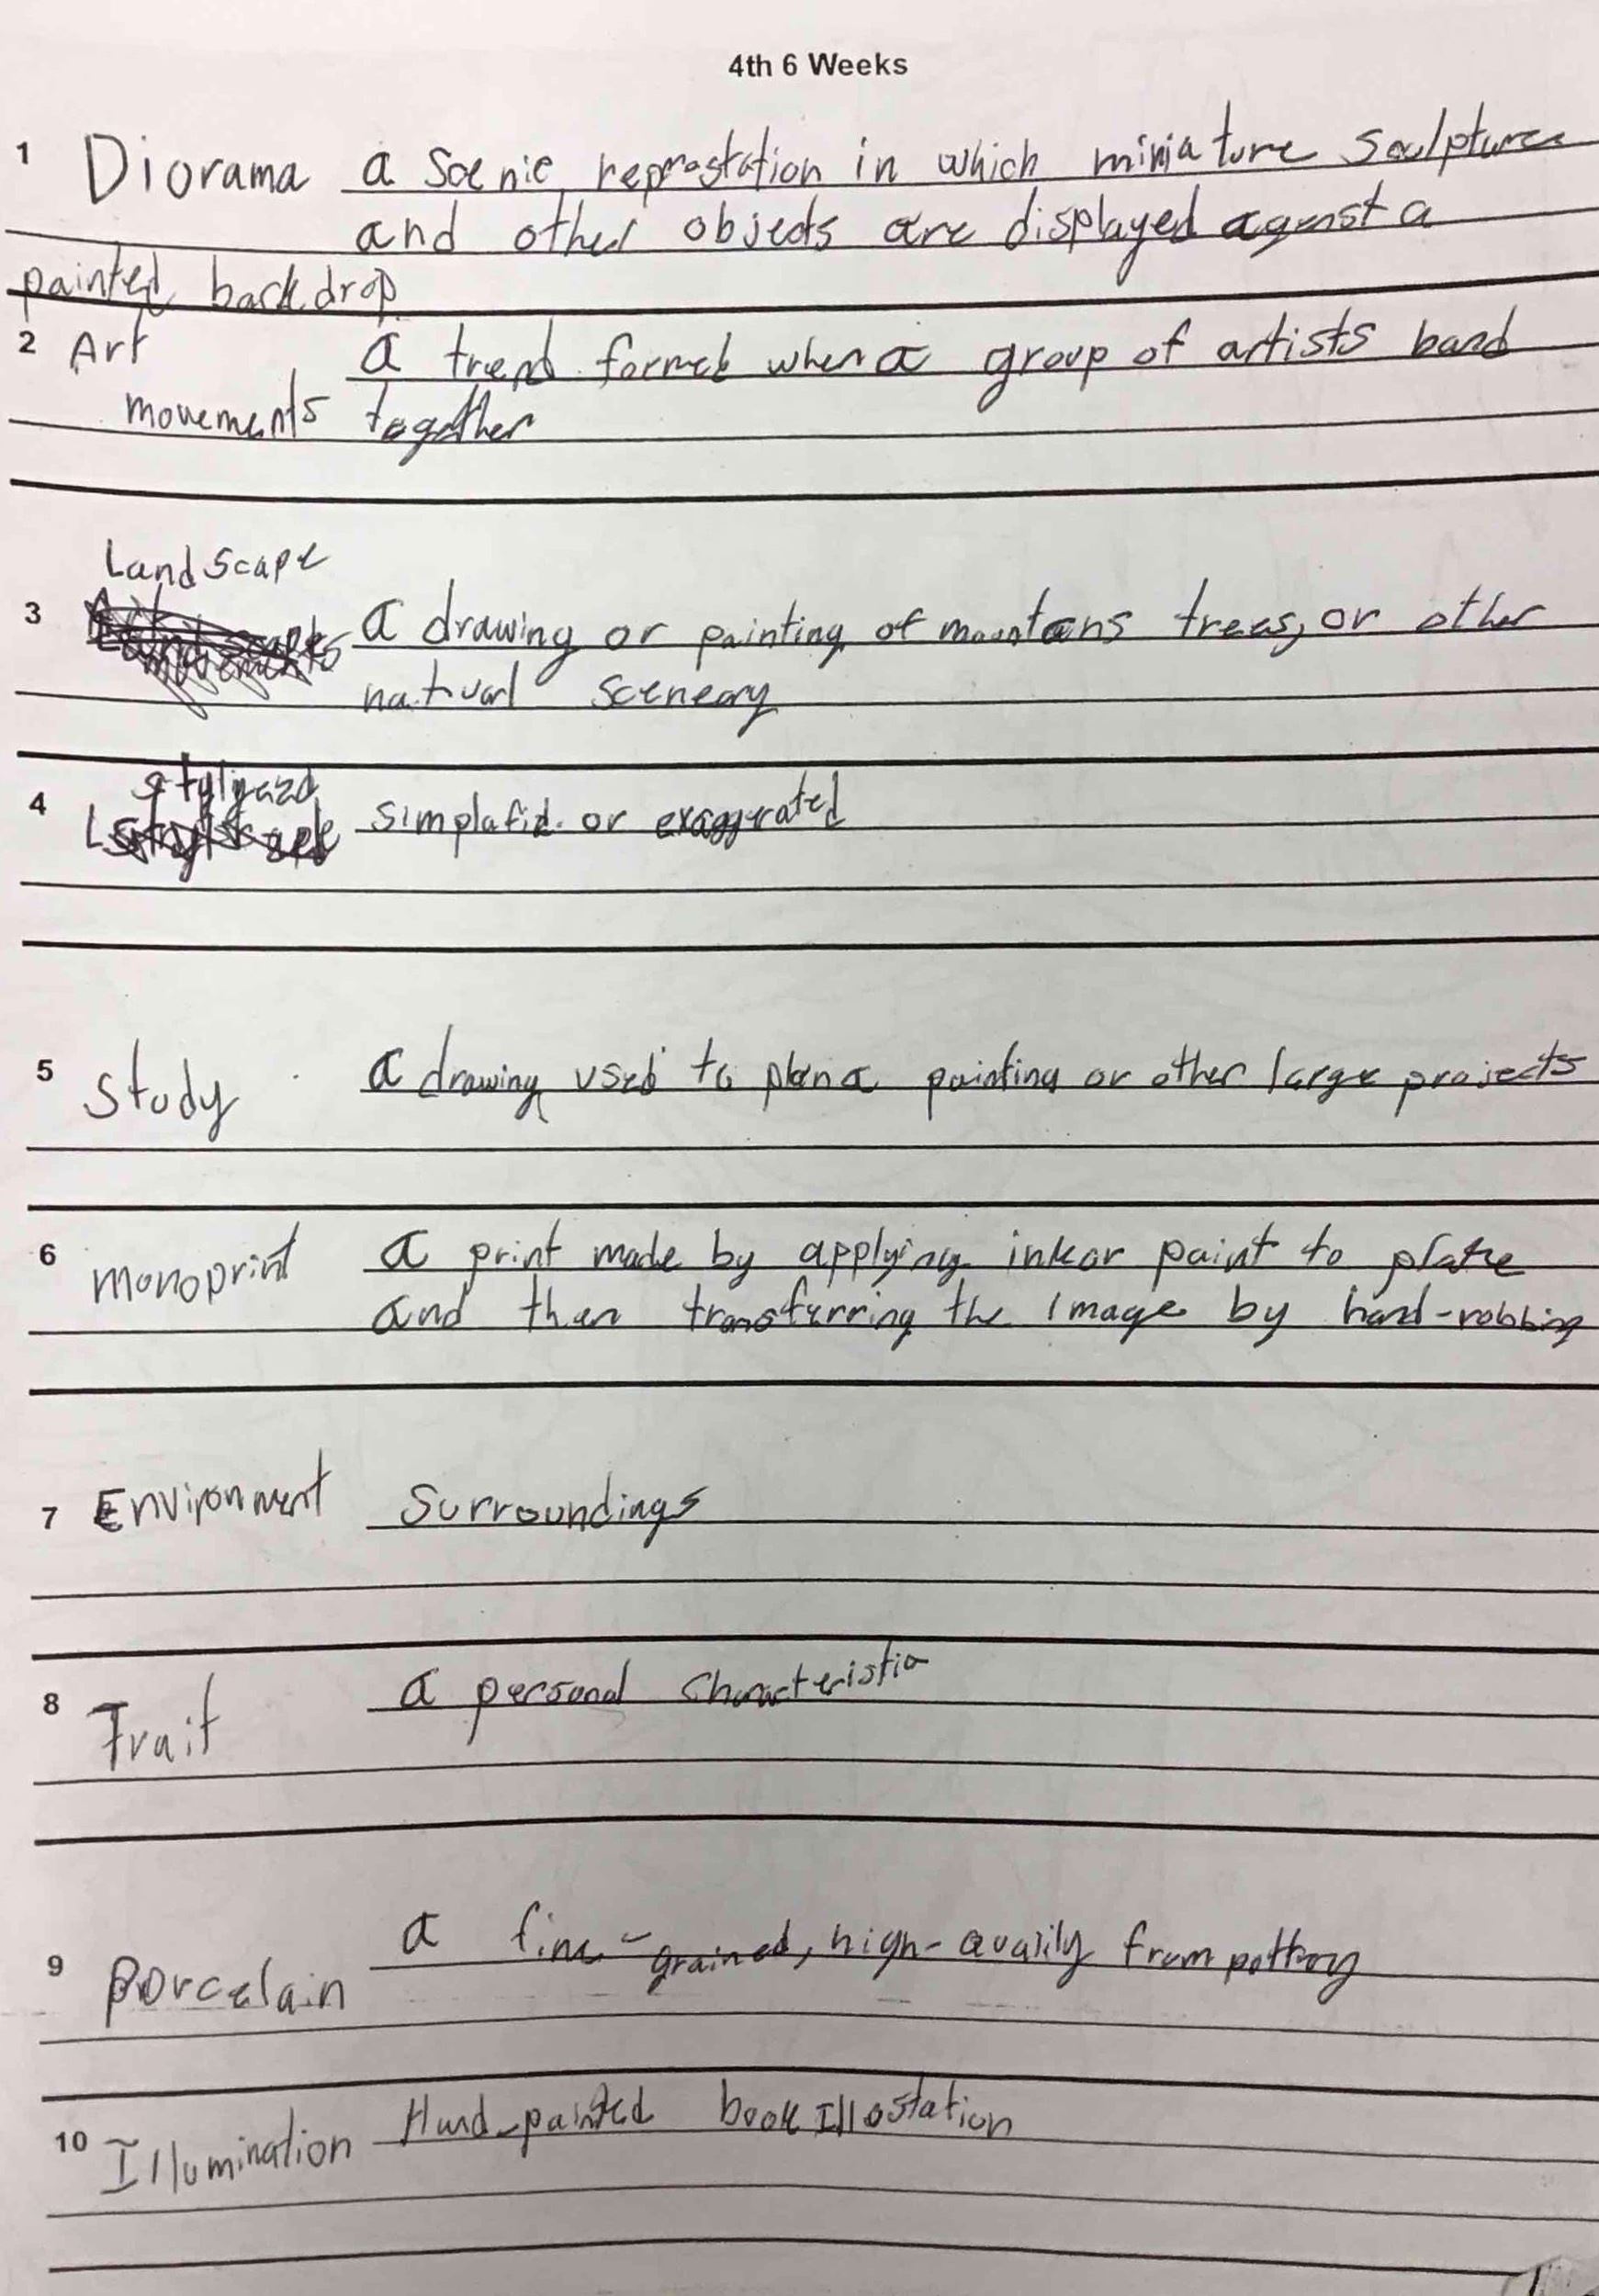 4th 6 Weeks
1 Diorama a Scenic reprostation in which miniature Sculptures
and other objects are displayed aganst a
painted backdrop
2 Art a trend formed when a group of artists band
movements together
Landscape
3 a drawing or painting of mountans trees, or other
natural sceneary
stylyazd
4 simplafid or exaggerated
5 Study a drawing used to plan a painting or other large projects
6 monoprint a print made by applying ink or paint to plate
and then transfurring the Image by hand-robbing
7 Environment Surroundings
8 Trait a personal characteristic
9 Porcelain a fine-grained, high-quality from pottory
10 Illumination Hand-painted book Illostation